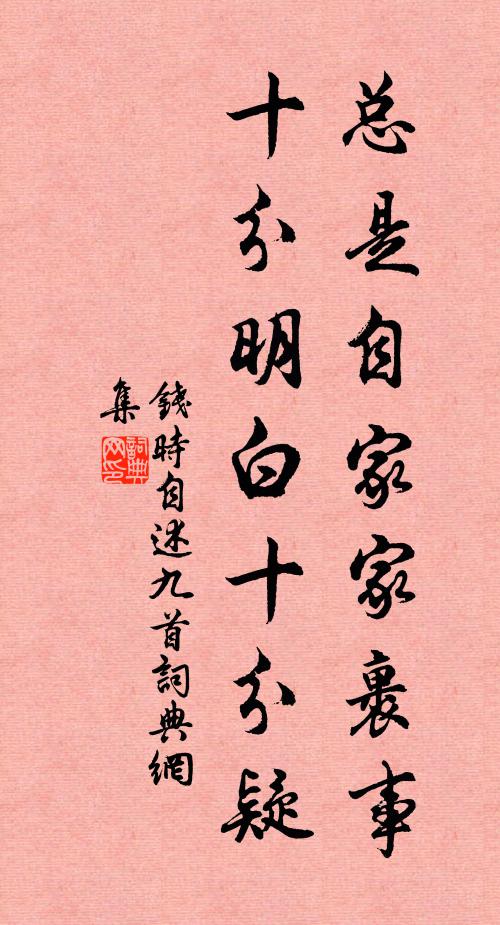 总是自家家裏事
十分明白十分疑
錢時自述九首詞典網
集
詞典网印